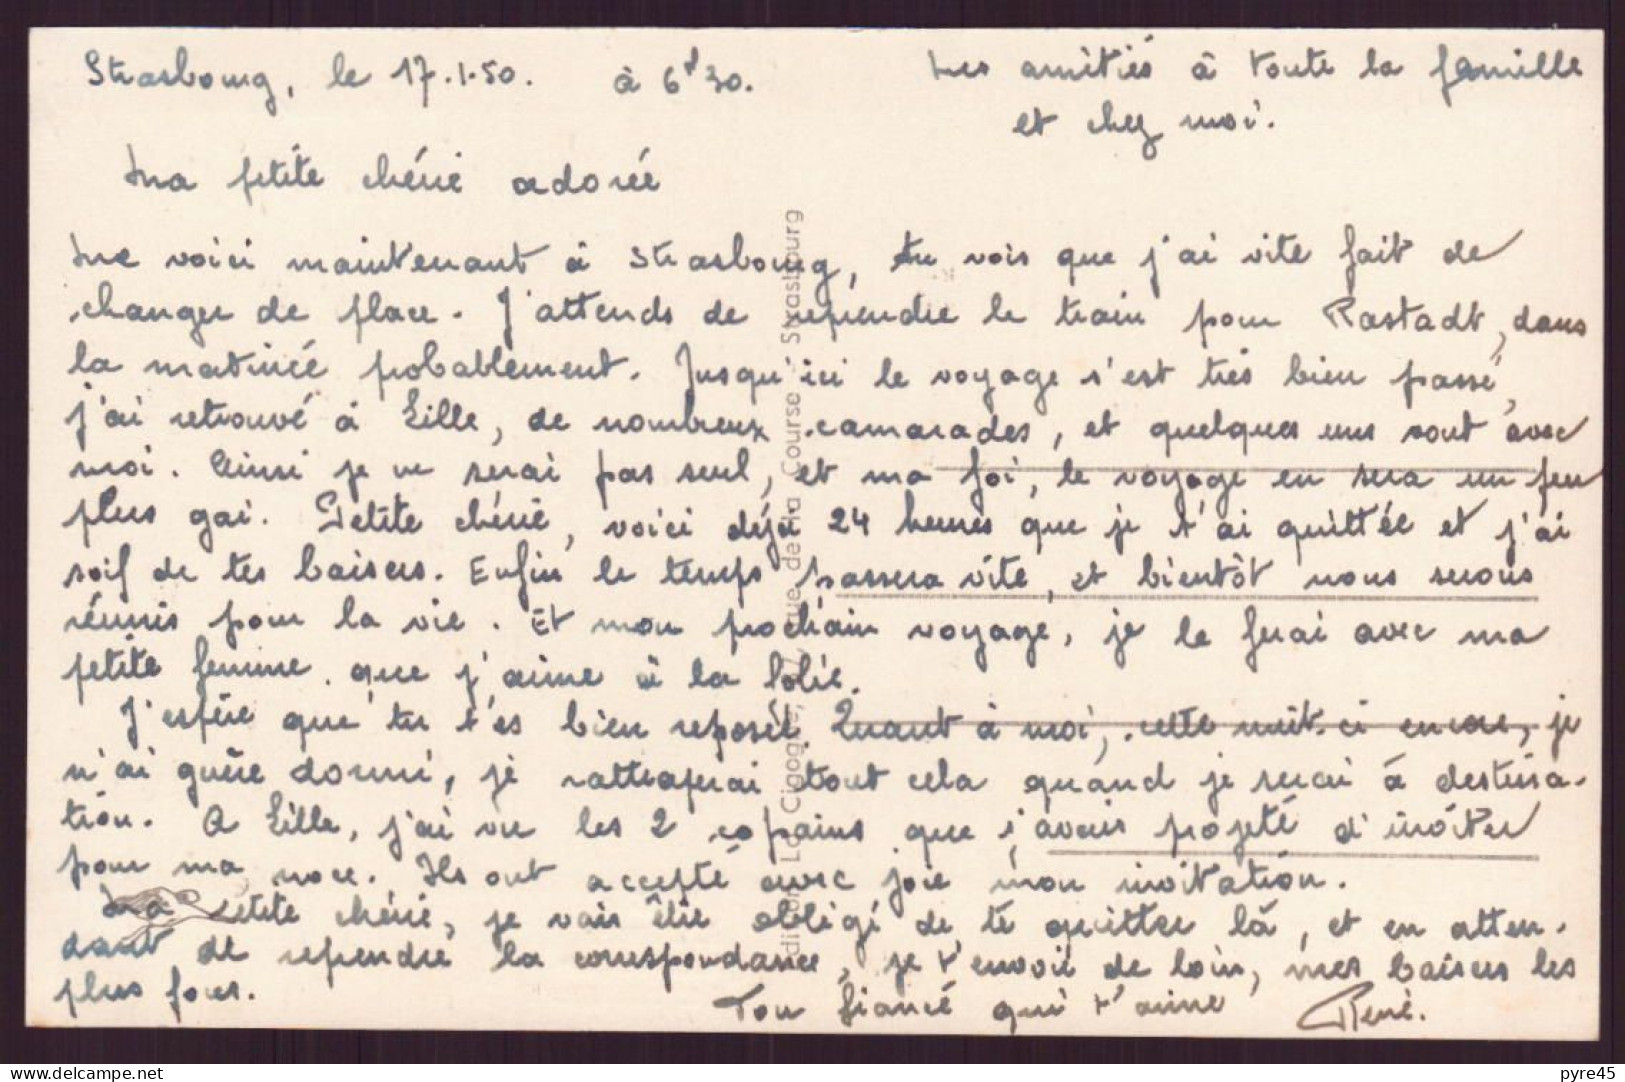 Strasbourg, le 17.1.50. à 6h30.
Mes amitiés à toute la famille
et chez moi.
Ma petite chérie adorée
Me voici maintenant à Strasbourg, tu vois que j'ai vite fait de
changer de place. J'attends de reprendre le train pour Rastadt, dans
la matinée probablement. Jusqu'ici le voyage s'est très bien passé,
j'ai retrouvé à Lille, de nombreux camarades, et quelques uns sont avec
moi. Ainsi je ne serai pas seul, et ma foi, le voyage en sera un peu
plus gai. Petite chérie, voici déjà 24 heures que je t'ai quittée et j'ai
soif de tes baisers. Enfin le temps passera vite, et bientôt nous serons
réunis pour la vie. Et mon prochain voyage, je le ferai avec ma
petite femme que j'aime à la folie.
J'espère que tu t'es bien reposée. Quant à moi, cette nuit-ci encore, je
n'ai guère dormi, je rattraperai tout cela quand je serai à destina-
tion. A Lille, j'ai vu les 2 copains que j'avais projeté d'inviter
pour ma noce. Ils ont accepté avec joie mon invitation.
Ma petite chérie, je vais être obligé de te quitter là, et en atten-
dant de reprendre la correspondance, je t'envoie de loin, mes baisers les
plus fous.
Ton fiancé qui t'aime René.
La Cigogne, rue de la Course Strasbourg
WWW.DELCAMPE.NET
pyre45